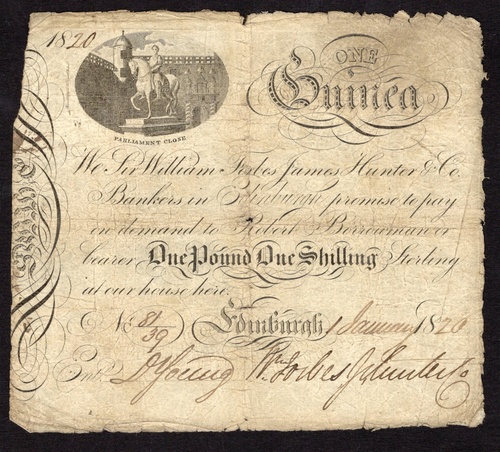 1820
ONE
Guinea
PARLIAMENT CLOSE
We Sir William Forbes James Hunter & Co.
Bankers in Edinburgh promise to pay
on demand to Robert Berrowman or
bearer One Pound One Shilling Sterling
at our house here.
No. 81/39 Edinburgh 1 January 1820
Entd. D Young Wm Forbes J Hunter & Co